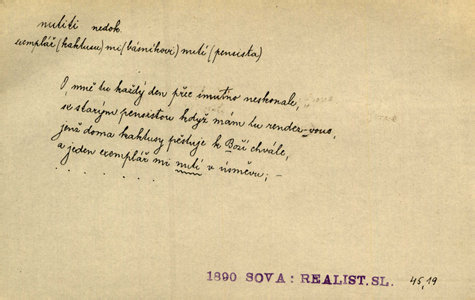 nutiti nedok.
exemplář (kaktusu) mi (básníkovi) nutí (pensista)
O, mně tu každý den přec smutno neskonale,
se starým pensistou když mám tu rendez-vous,
jenž doma kaktusy pěstuje k Boží chvále,
a jeden exemplář mi nutí v úsměvu; –
. . . . . . .
1890 SOVA: REALIST. SL. 45, 19